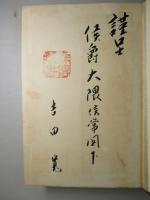 謹呈
侯爵大隈信常閣下
吉田